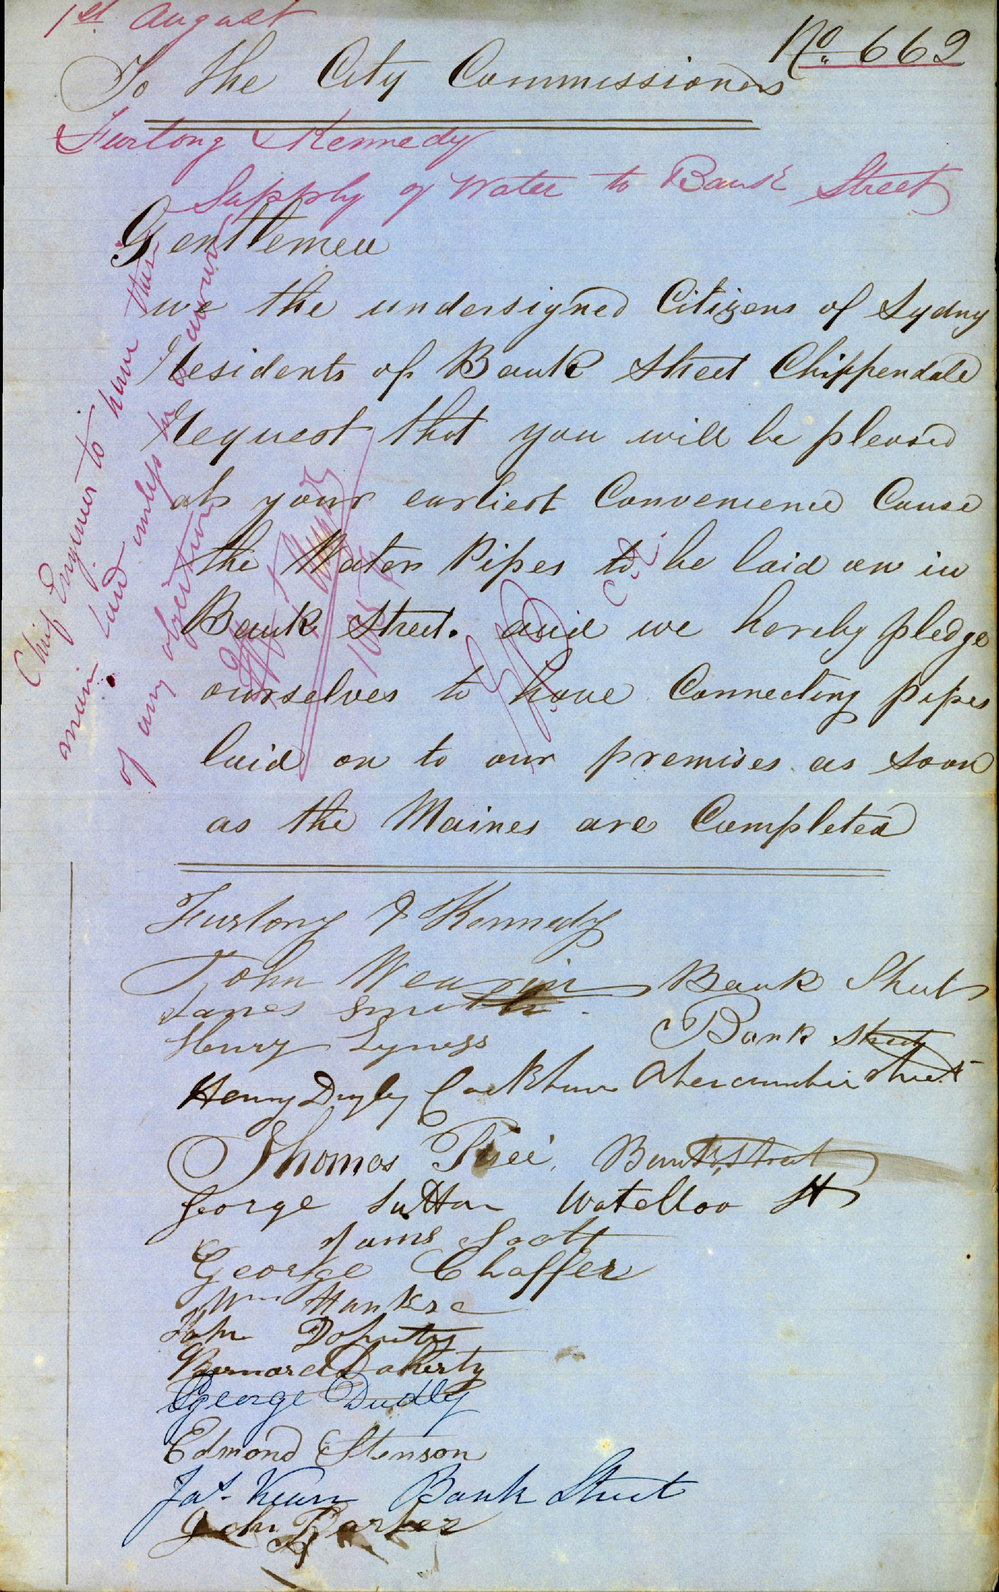 1st August
No. 662
To the City Commissioners
Furlong & Kennedy
Supply of Water to Bank Street
Gentlemen
we the undersigned Citizens of Sydny
Residents of Bank Street Chippendale
Request that you will be pleased
at your earliest Convenience Cause
the Water Pipes to be laid on in
Bank Street. and we hereby pledge
ourselves to have Connecting pipes
laid on to our premises as soon
as the Maines are Completed
Chief Engineer to have this
main laid unless he is aware
of any objection
Furlong & Kennedy
John Wearin Bank Street
James Smith
Henry Lyness Bank Street
Henry Digby Abercrombie Street
Thomas Bank Street
George Sutton Watelloo St
James Scott
George Chaffer
Wm
John
Bernard Daherty
George Dudly
Edmond Stenson
Jas. Bank Street
John Barker